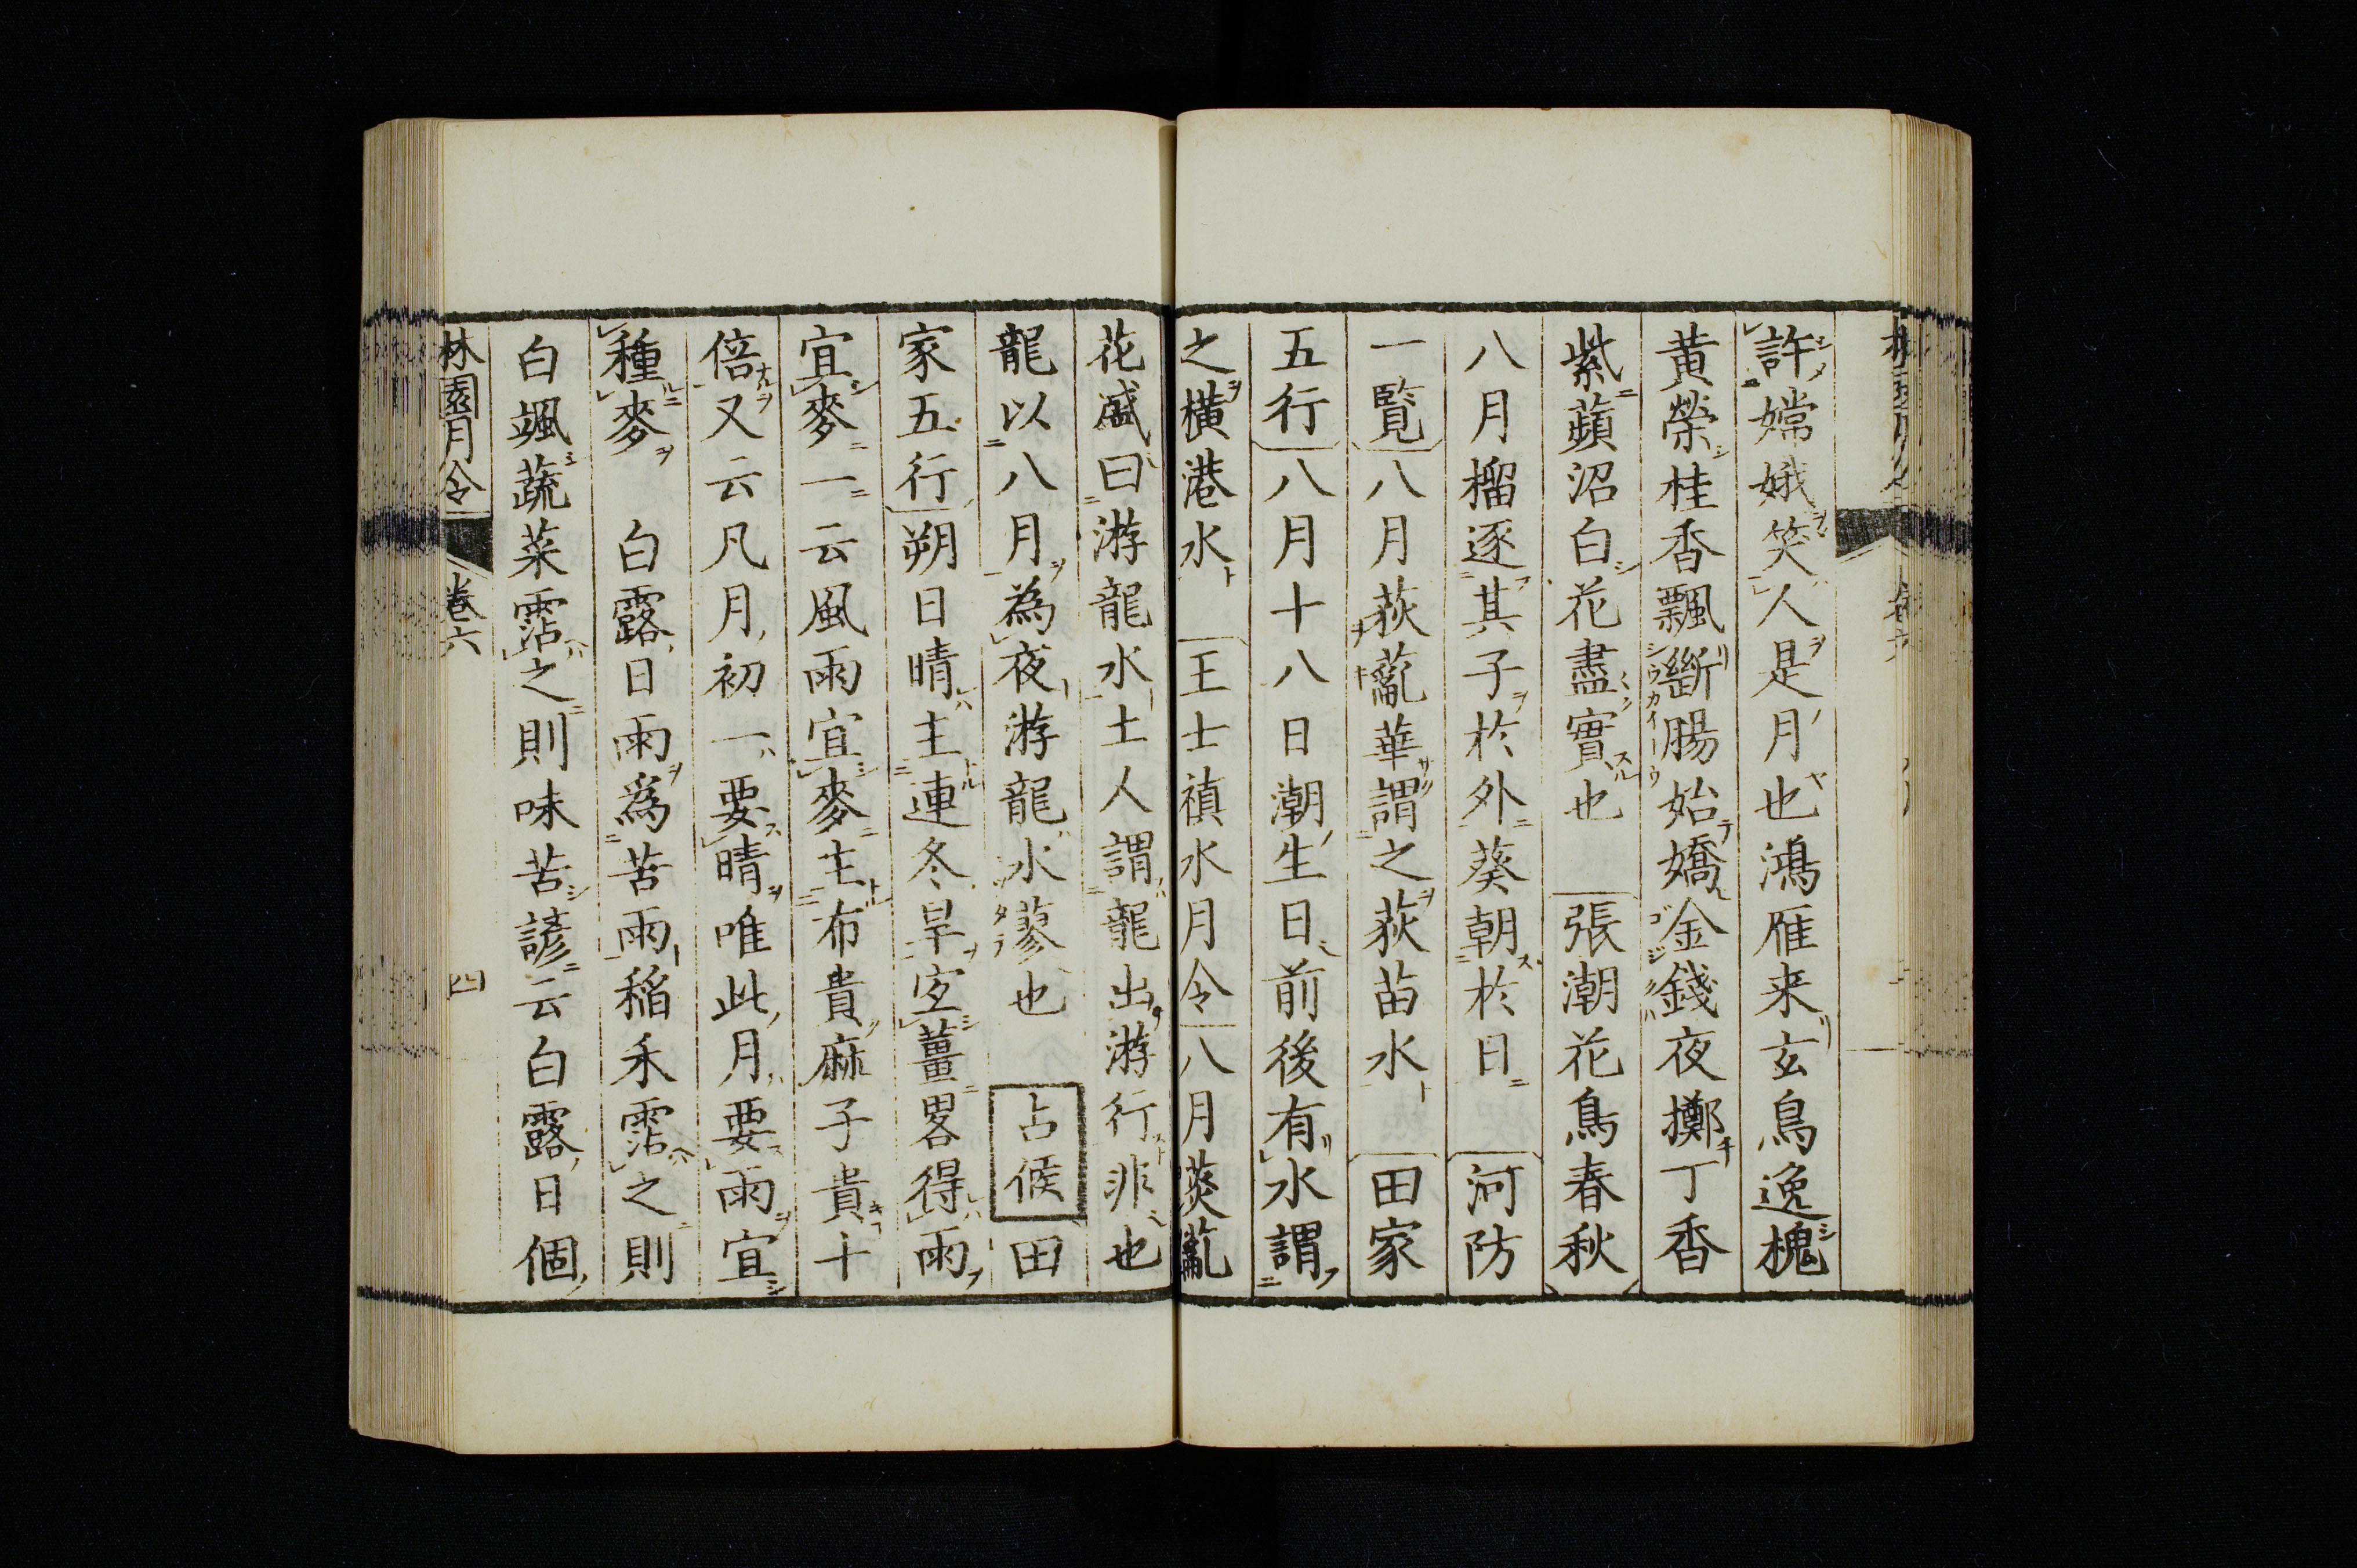 許嫦娥笑人是月也鴻雁来玄鳥逸槐
黄榮桂香飄斷腸始嬌金錢夜擲丁香
紫蘋沼白花盡實也 張潮花鳥春秋
八月榴逐其子於外葵朝於日 河防
一覧八月荻薍華謂之荻苗水 田家
五行八月十八日潮生日前後有水謂
之横港水 王士禎水月令八月菼薍
花盛曰游龍水土人謂龍出游行非也
龍以八月為夜游龍水蓼也 占候 田
家五行朔日晴主連冬旱宜薑畧得雨
宜麥一云風雨宜麥主布貴麻子貴十
倍又云凡月初一要晴唯此月要雨宜
種麥 白露日雨爲苦雨稲禾霑之則
白颯蔬菜霑之則味苦諺云白露日個
林園月令 卷六 四